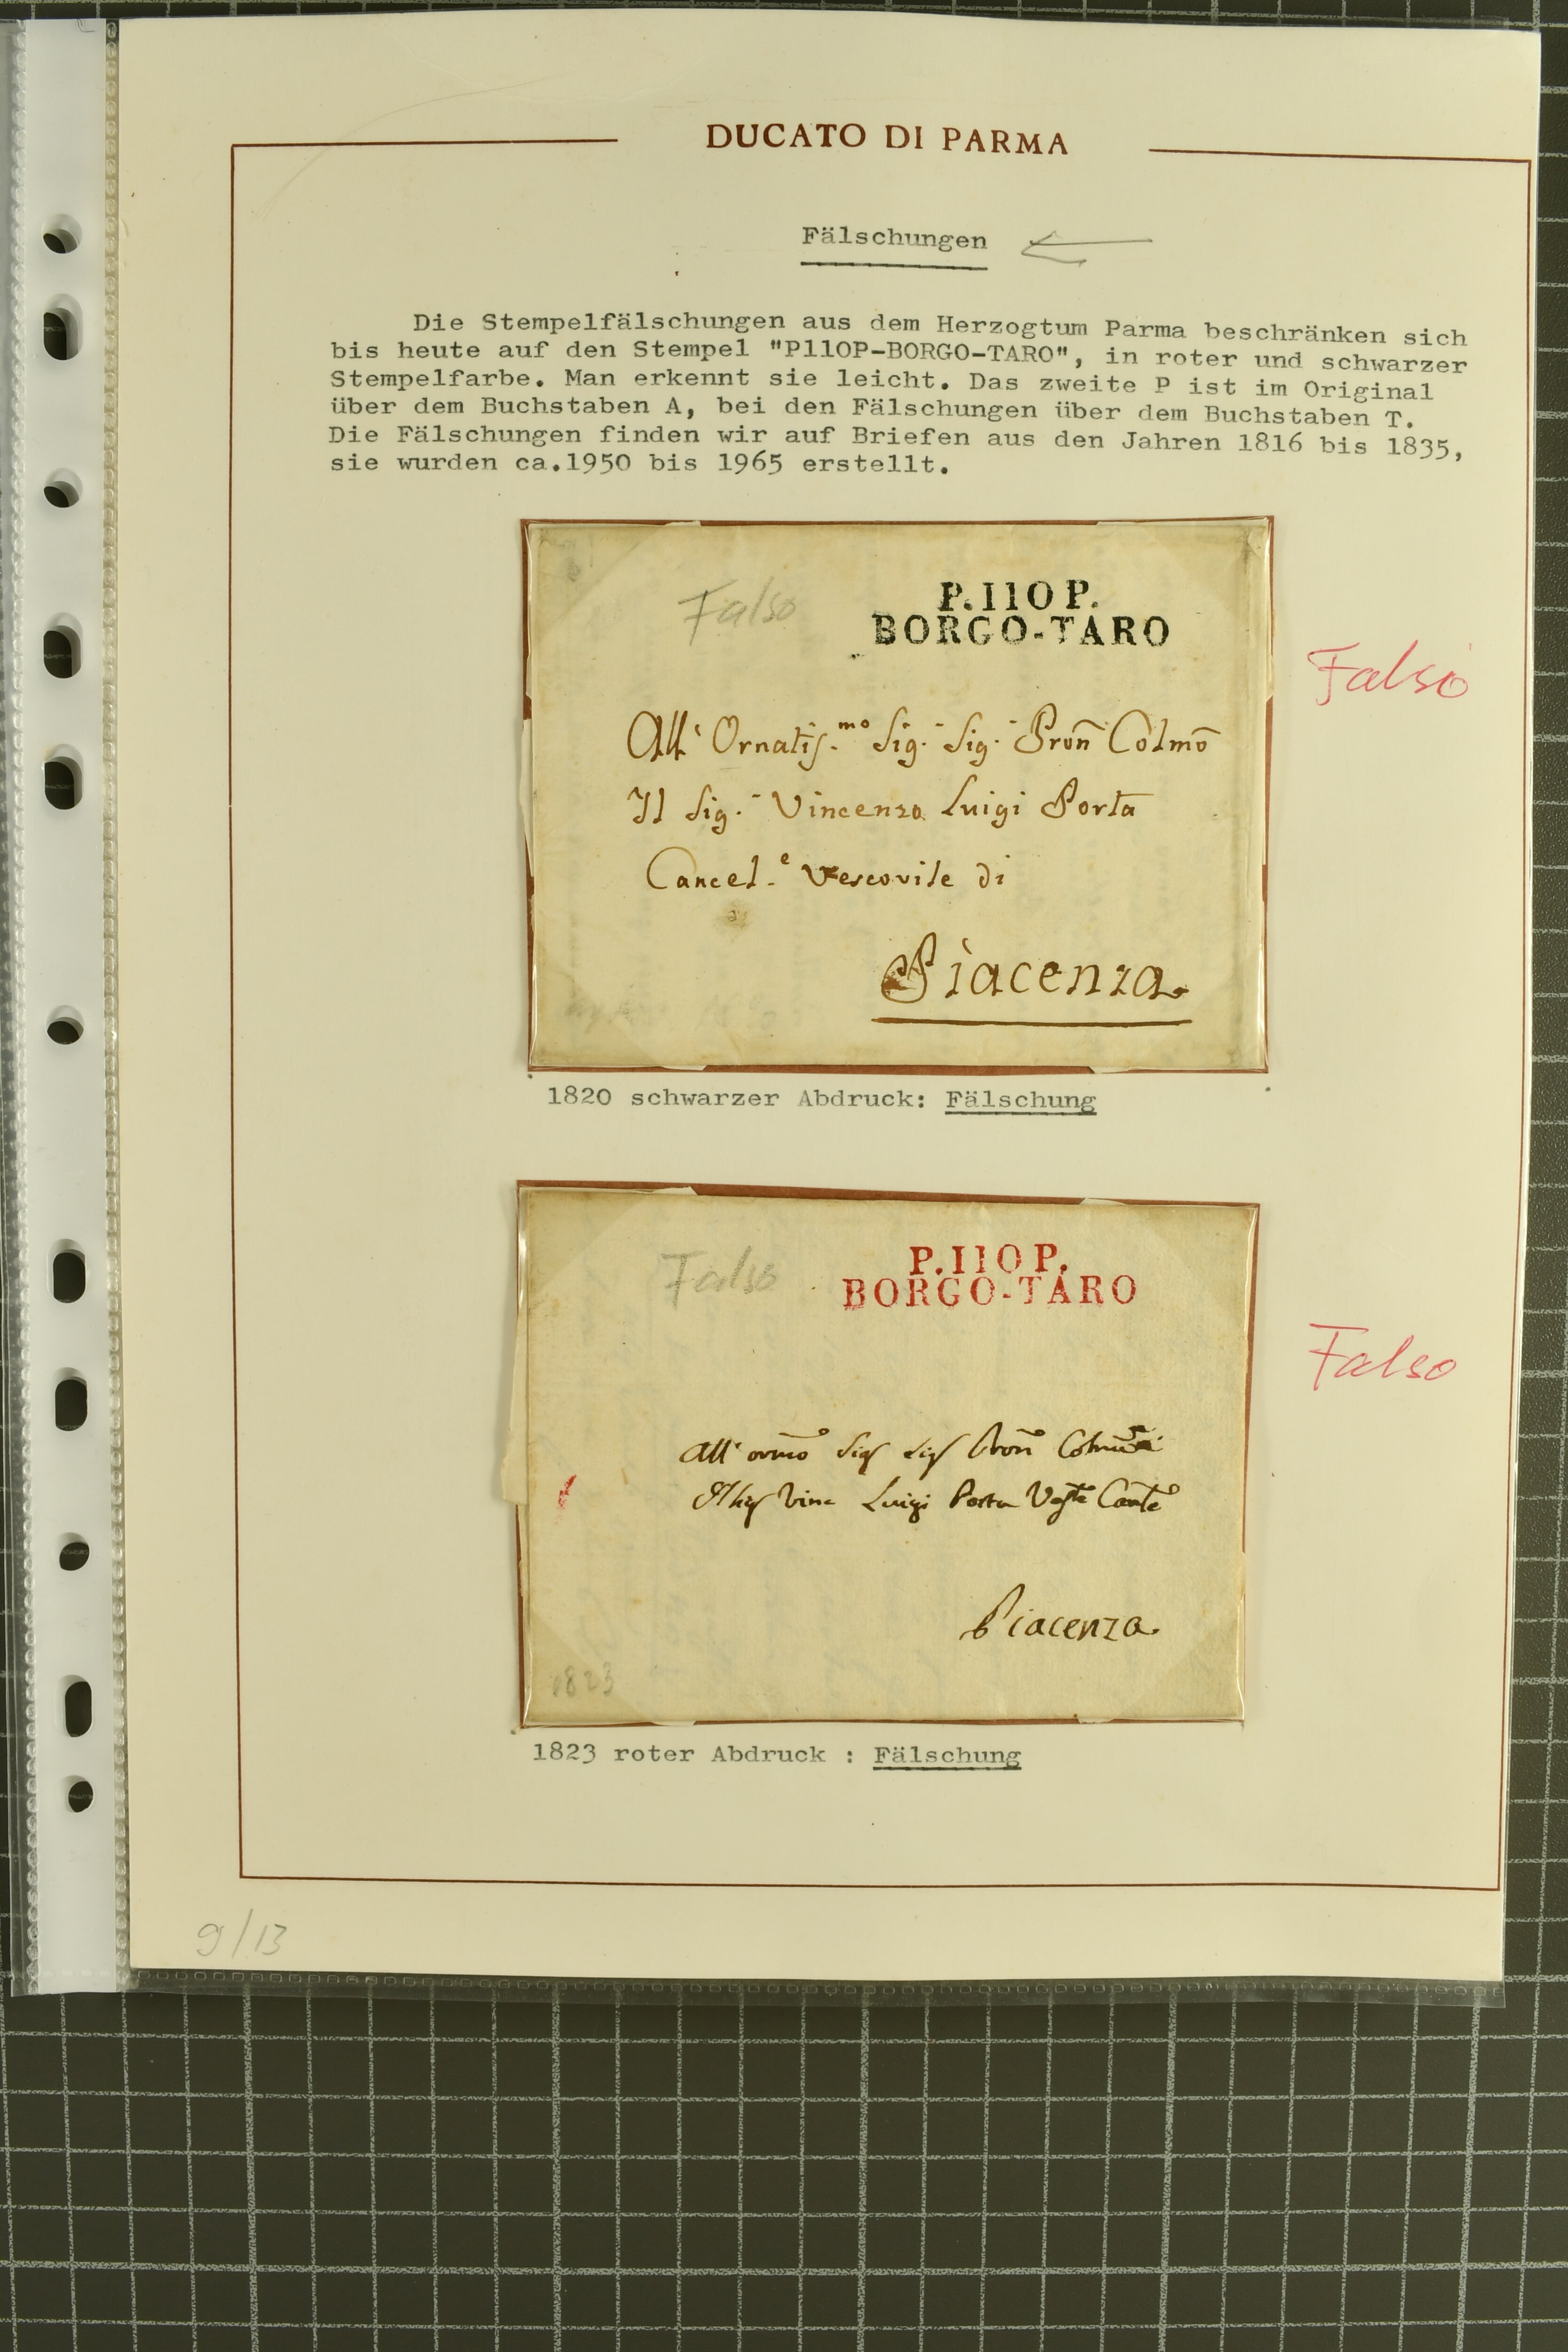 DUCATO DI PARMA
Fälschungen
Die Stempelfälschungen aus dem Herzogtum Parma beschränken sich
bis heute auf den Stempel "P110P-BORGO-TARO", in roter und schwarzer
Stempelfarbe. Man erkennt sie leicht. Das zweite P ist im Original
über dem Buchstaben A, bei den Fälschungen über dem Buchstaben T.
Die Fälschungen finden wir auf Briefen aus den Jahren 1816 bis 1835,
sie wurden ca.1950 bis 1965 erstellt.
Falso
P.110 P.
BORGO-TARO
Falso
All' Ornatis.mo Sig. Sig. Pron Colmo
Il Sig. Vincenzo Luigi Porta
Cancel.e Vescovile di
Piacenza
1820 schwarzer Abdruck: Fälschung
Falso
P.110 P.
BORGO-TARO
Falso
All' ormo Sig Sig Pron
Luigi Porta
Piacenza
1823
1823 roter Abdruck : Fälschung
9/13